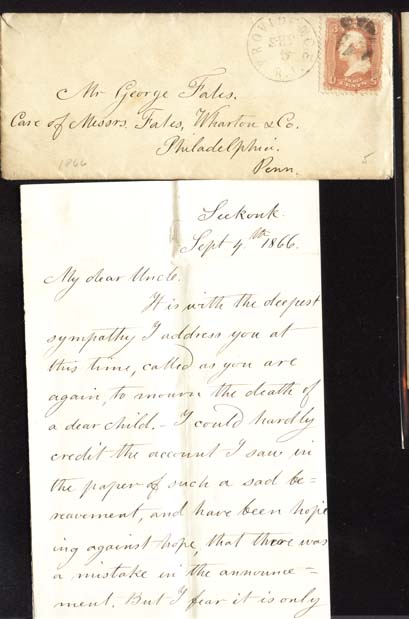 PROVIDENCE
SEP
5
R.I.
3 3
U.S. POSTAGE
CENTS
Mr George Fales.
Care of Messrs. Fales, Wharton & Co.
Philadelphia.
Penn.
1866
5
Seekonk.
Sept 4th 1866.
My dear Uncle.
It is with the deepest
sympathy I address you at
this time, called as you are
again, to mourn the death of
a dear child. – I could hardly
credit the account I saw in
the paper of such a sad be=
reavement, and have been hope
ing against hope, that there was
a mistake in the announce=
ment. But I fear it is only